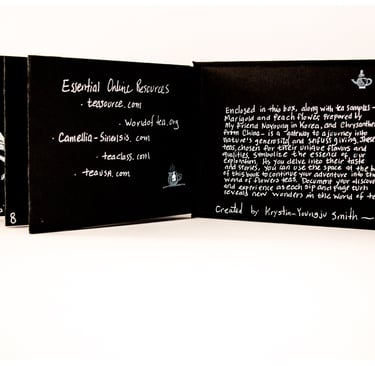 Essential Online Resources
· teasource.com
· Worldoftea.org
· Camellia-Sinensis.com
· teaclass.com
· teausa.com
8
Enclosed in this box, along with tea samples-
Marigold and Peach flower, prepared by
My friend Nayoung in Korea, and Chrysanthe
from China - is a gateway to a journey into
nature's generosity and selfless giving. These
teas, chosen for their unique flavors and
qualities, symbolize the essence of our
exploration. As you delve into their tastes
and stories, you can use the space at the b
of this book to continue your adventure into the
world of flowers teas. Document your discove
and experience as each sip and page turn
reveals new wonders in the world of te
Created by Krystin-Youngju Smith